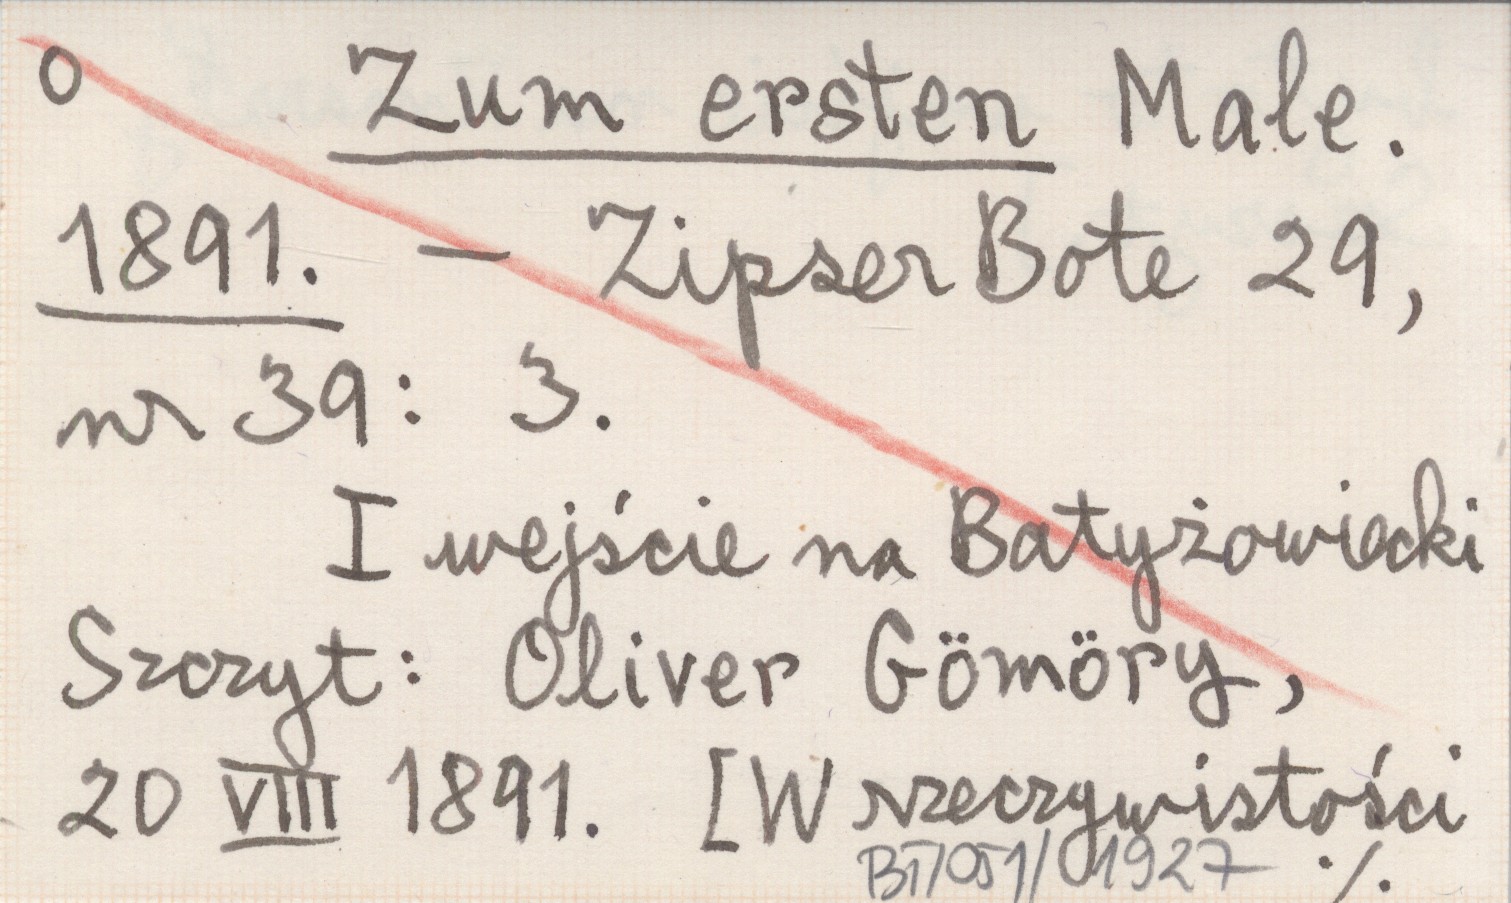 O Zum ersten Male.
1891. — Zipser Bote 29,
nr 39: 3.
I wejście na Batyżowiecki
Szczyt: Oliver Gömöry,
20 VIII 1891. [W rzeczywistości
1927 ./.